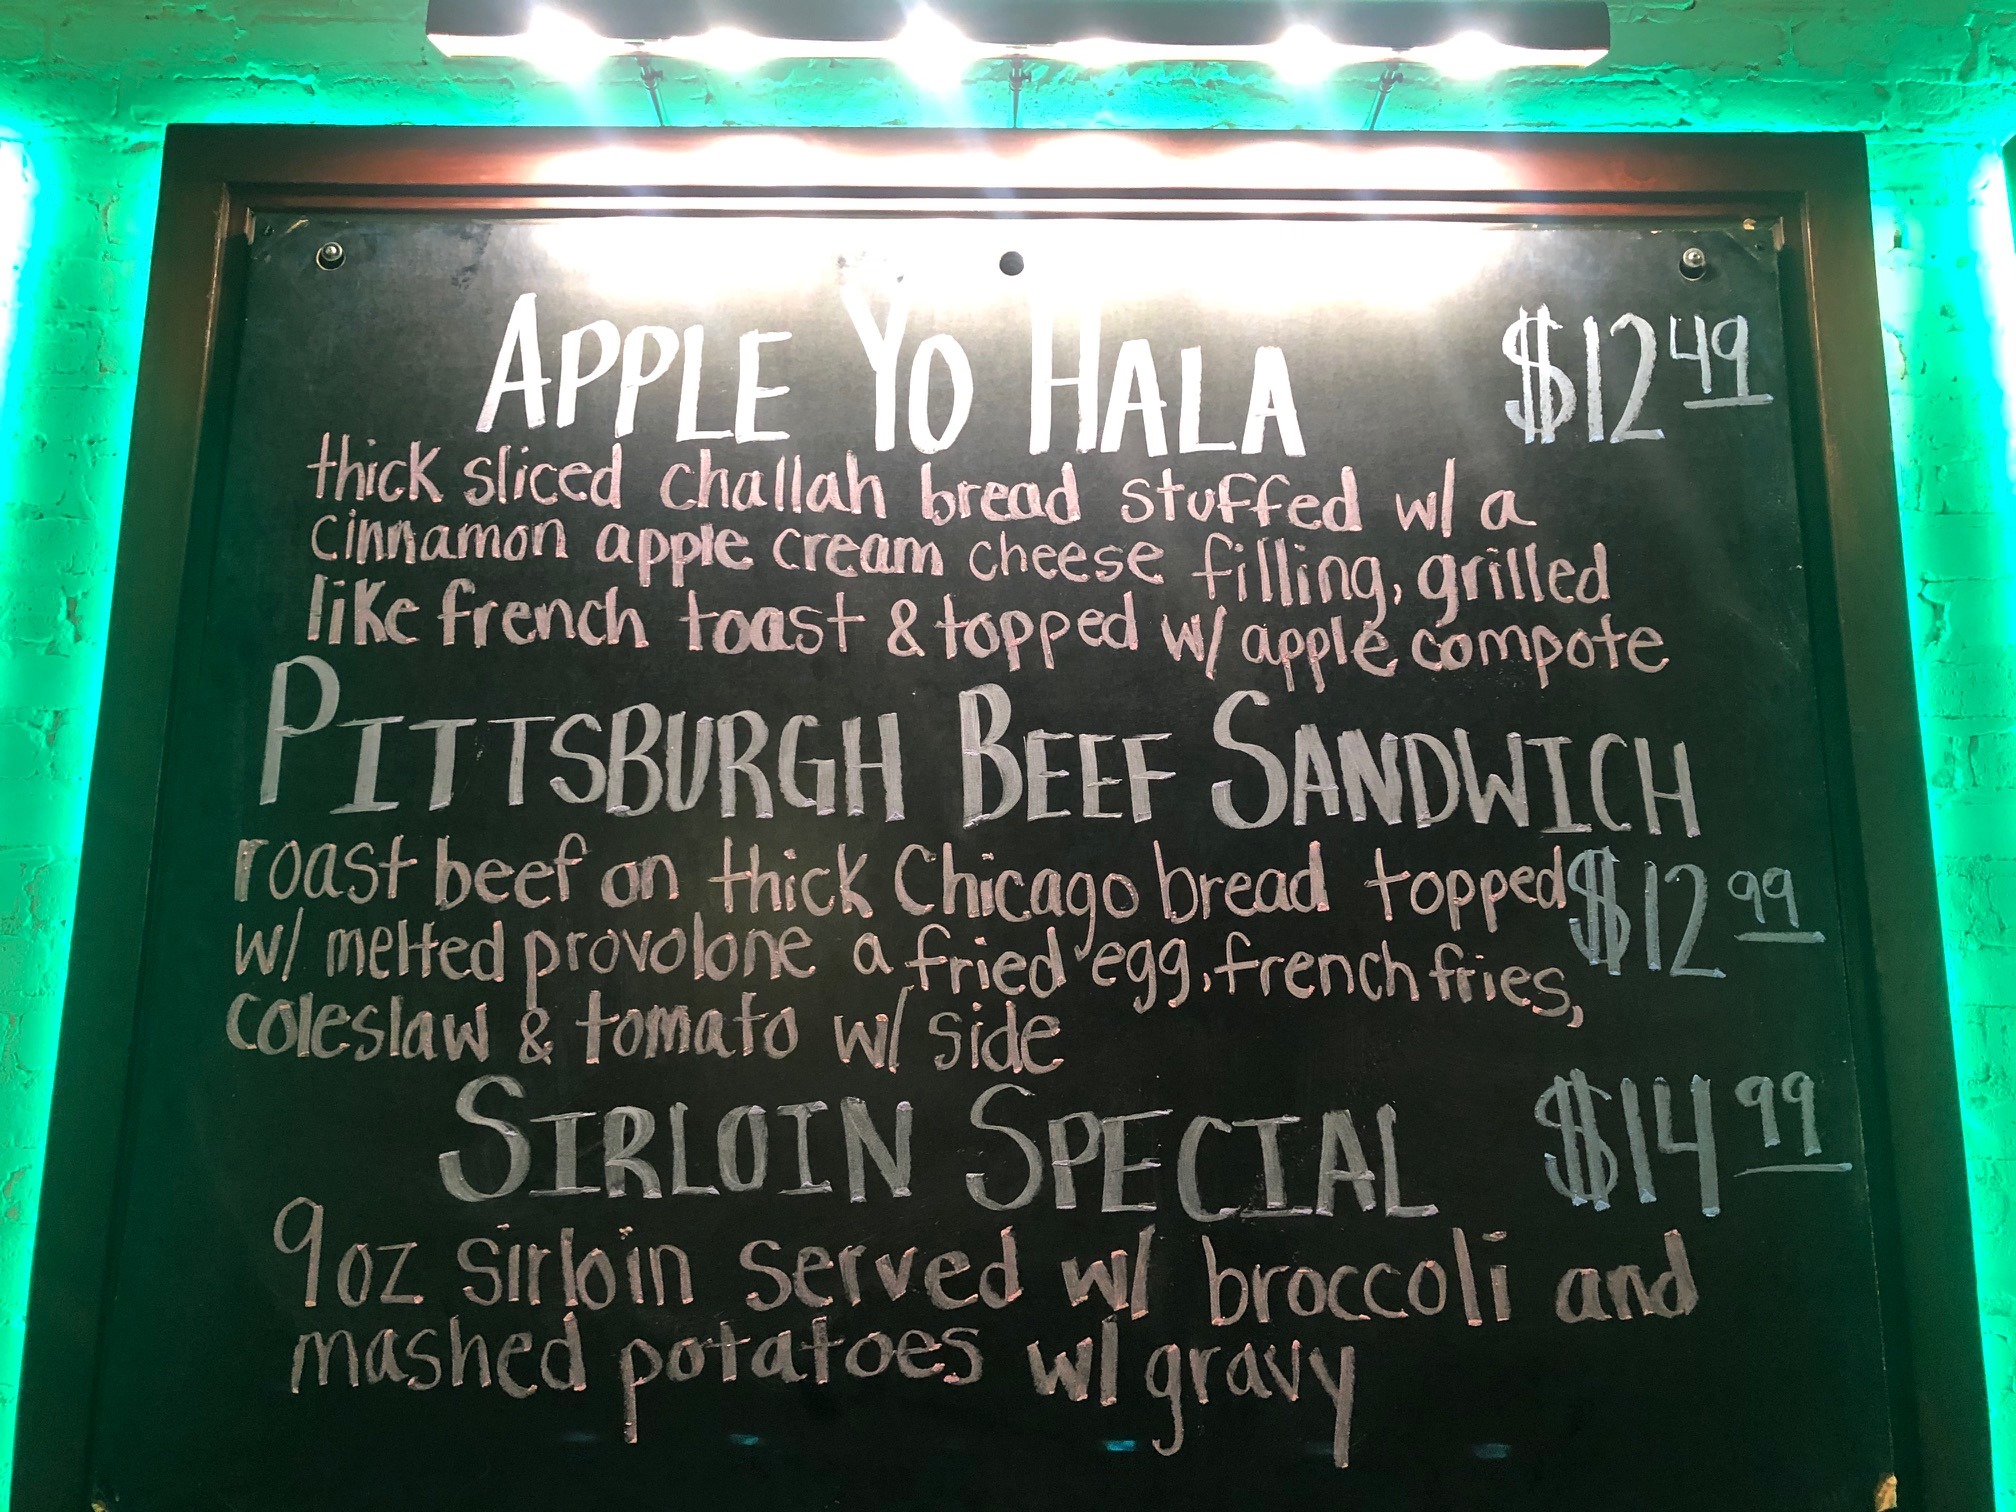 APPLE YO HALA $12.49
thick sliced challah bread stuffed w/ a
cinnamon apple cream cheese filling, grilled
like french toast & topped w/ apple compote
PITTSBURGH BEEF SANDWICH
roast beef on thick Chicago bread topped $12.99
w/ melted provolone a fried egg, french fries,
coleslaw & tomato w/ side
SIRLOIN SPECIAL $14.99
9oz sirloin served w/ broccoli and
mashed potatoes w/ gravy